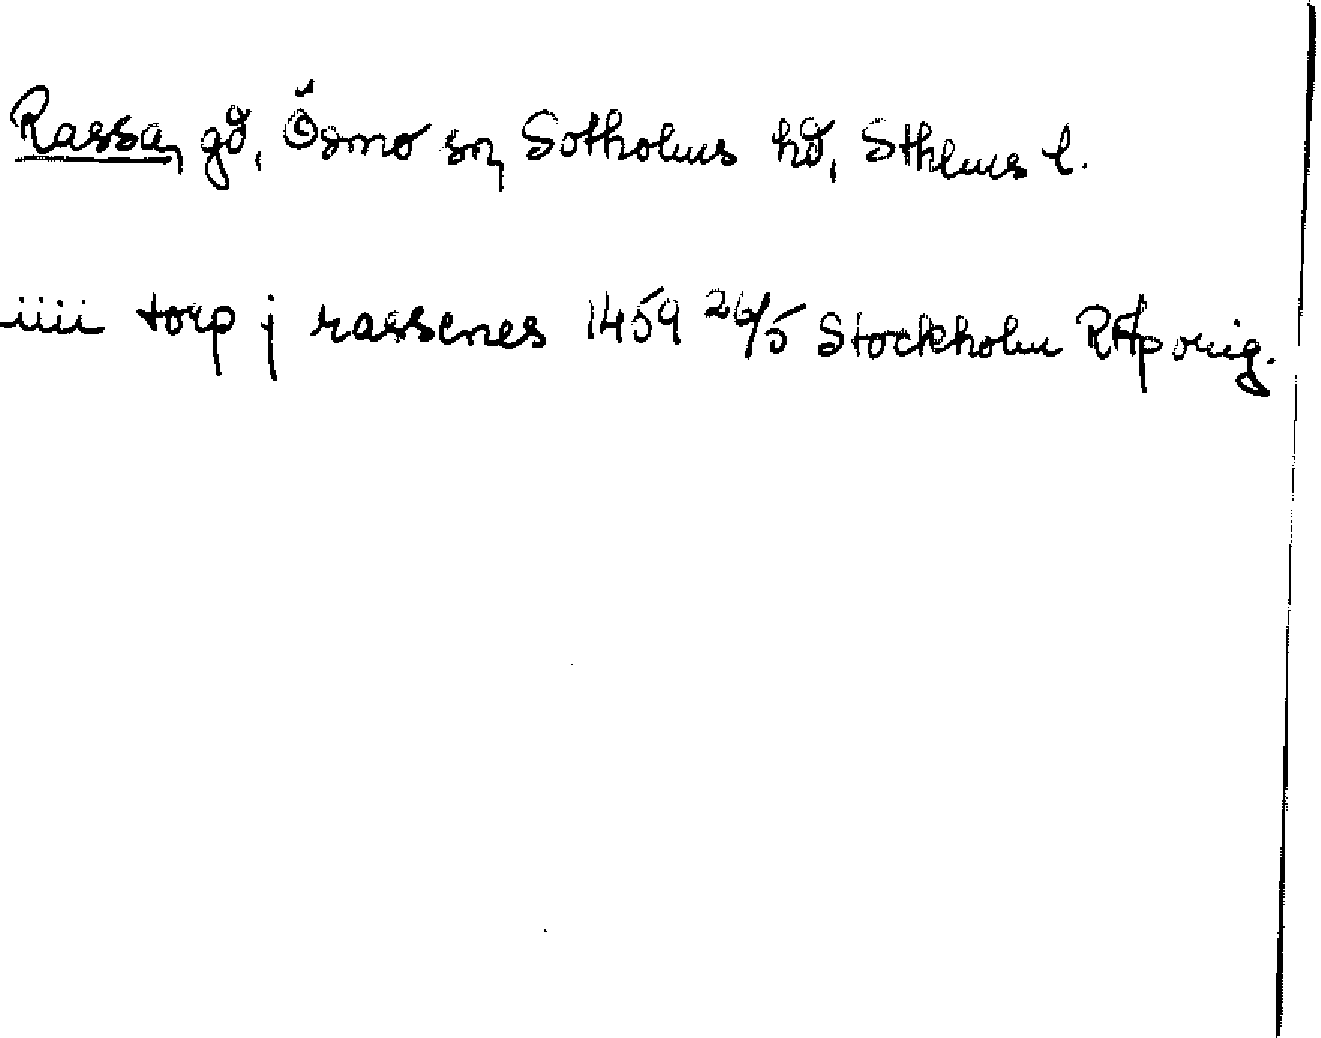 Rassa, gd, Ösmo sn, Sotholms hd, Sthlms l.
iiii torp j rassenes 1459 26/5 Stockholm RAp orig.